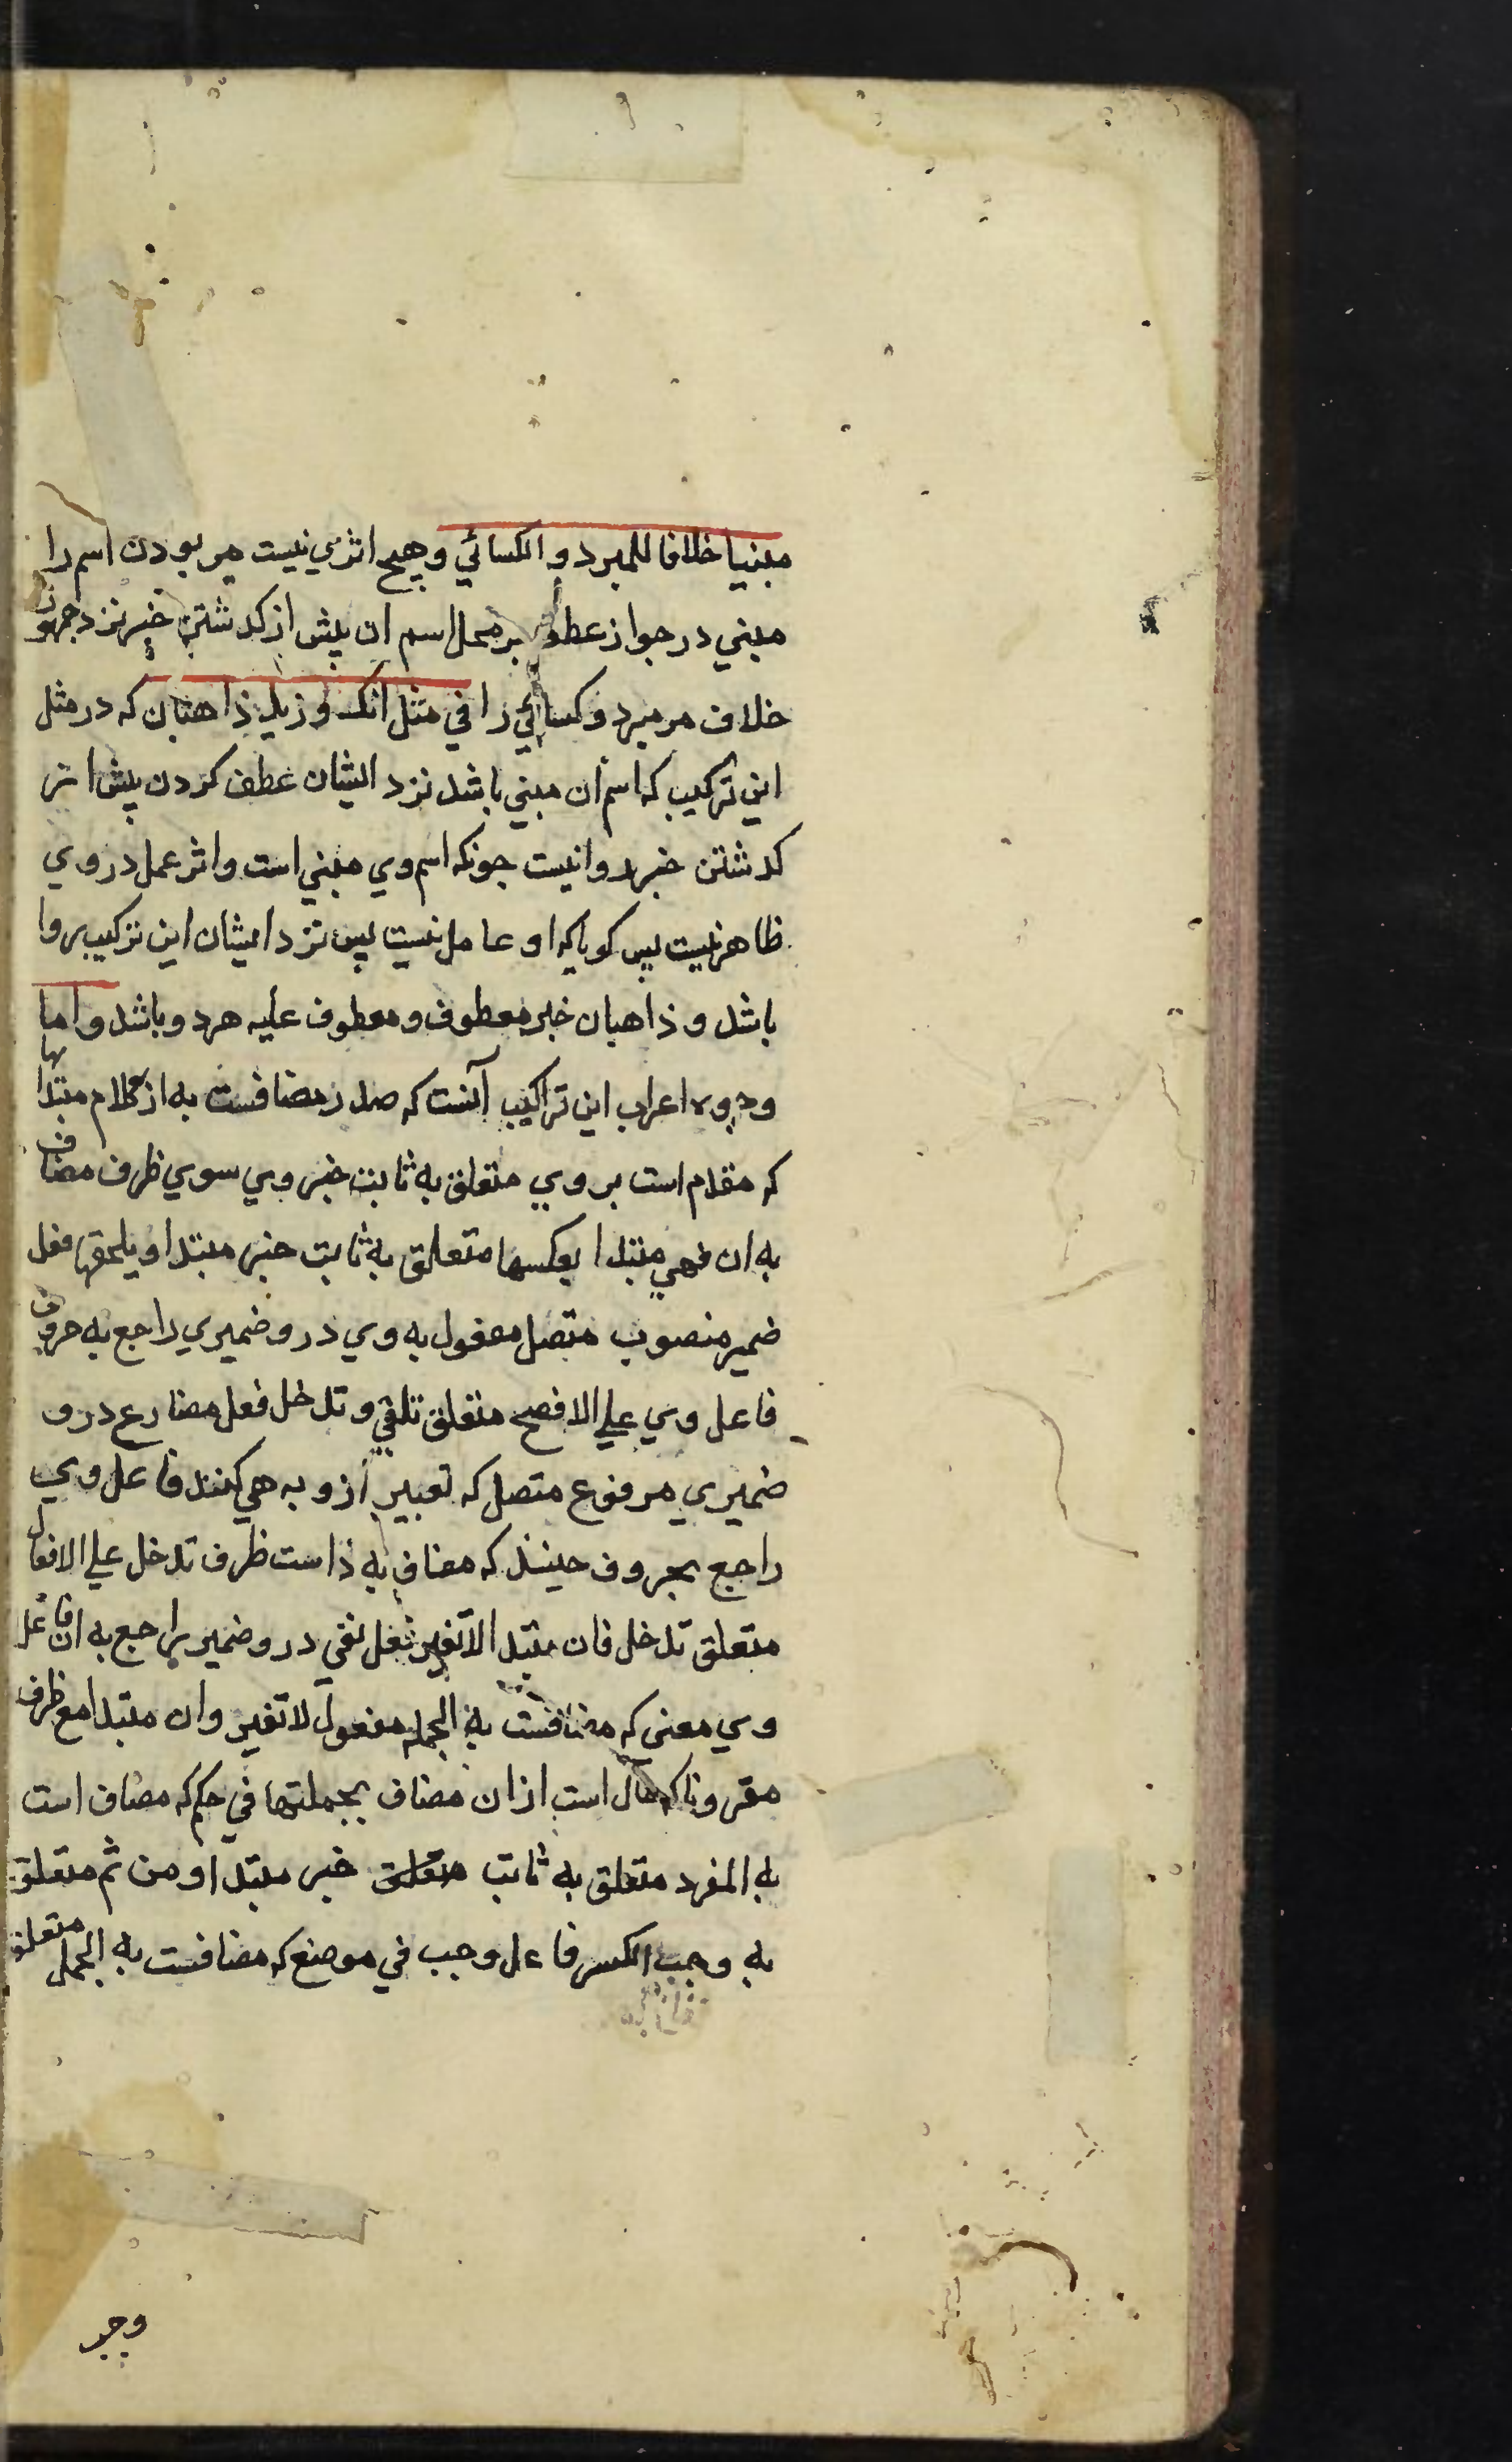 مبنيا خلافا للمبرد و الكسائي وهيچ اثري نيست مر بودن اسم را
مبني در جواز عطف بر محل اسم ان پيش از كدشتن خبر نزد جمهور
خلاف مر مبرد و كسائي را في مثل انك و زيد ذاهبان كه در مثل
اين تركيب كه اسم ان مبني باشد نزد ايشان عطف كردن پيش از
كدشتن خبر روا نيست جونكه اسم وي مبني است واثر عمل در وي
ظاهر نيست پس كويا كه او عامل نيست پس نزد ايشان اين تركيب روا
باشد و ذاهبان خبر معطوف و معطوف عليه هر دو باشد و اما
وجوه اعراب اين تراكيب آنست كه صدر مضافست به ها از كلام مبتدا
كه مقدم است بر وي متعلق به ثابت خبر وي سوي ظرف مضاف
به ان فهي مبتدا بعكسها متعلق به ثابت خبر مبتدا و يلحقها فعل
ضمير منصوب متصل مفعول به وي در و ضميري راجع به حروف
فاعل وي علي الافصح متعلق تلقي و تدخل فعل مضارع در و
ضميري مرفوع متصل كه تعبير از و به هي كنند فاعل وي
راجع بحروف حينئذ كه مضاف به ذا ست ظرف تدخل علي الافعال
متعلق تدخل فان مبتدا لا تغير فعل نفي در و ضميري راجع به ان فاعل
وي معني كه مضافست به الجمله مفعول لا تغير وان مبتدا مع ظرف
مقرونا كه حال است از ان مضاف بجملتها في حكم كه مضاف است
به المفرد متعلق به ثابت متعلق خبر مبتدا و من ثم متعلق
به وجب الكسر فاعل وجب في موضع كه مضافست به الجمل متعلق
وجب